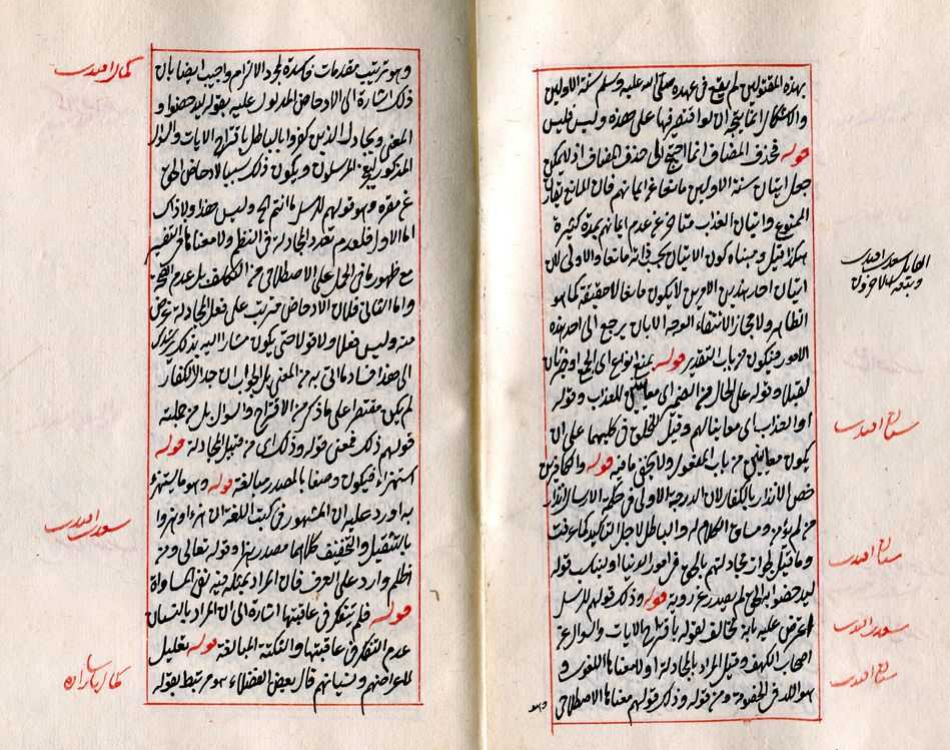 بهذه المقتولين لم يقع في عهده صلى الله عليه وسلم سنة الاولين
والاشكال انما يتجه ان لو اقتصر فيها على هذه وليس فليس
قوله فحذف المضاف انما احتيج الى حذف المضاف اذ لا يمكن
جعل اتيان سنة الاولين مانعا عن ايمانهم فان المانع يقارن
الممنوع واتيان العذاب متأخر عن عدم ايمانهم بمدة كثيرة
هكذا قيل ومبناه كون الاتيان بحقيقته مانعا والاولى لان
اتيان احد هذين الامرين لا يكون مانعا لا حقيقة كما هو
الظاهر ولا مجازا لانتفاء الوجه الا بان يرجع الى احد هذه
الامور فيكون من باب التقدير قوله بمعنى انواع
لقبلا وقوله على الحال من الضمير اى معاينين للعذاب وقوله
او العذاب اى معاينا لهم وقيل
يكون معاينين من باب المفعول ولا يخفى ما فيه قوله والكافرين
خص الانذار بالكفار لان الدرجة الاولى في حكمة الارسال انذار
من لم يؤمن ومساق الكلام له والباطل لاجل التأكيد كما عرفت
وما قيل لجواز مجادلتهم بالحق في امور الدنيا ويناسب قوله
ليدحضوا به الحق لم يصدر عن روية قوله وذلك قولهم للرسل
اعترض عليه بانه مخالف لقوله باقتراح الايات والسؤال عن
اصحاب الكهف وقيل المراد بالمجادلة اولا معناها اللغوى و
هو اللدد في الخصومة ومن قوله وذلك قولهم معناها الاصطلاحى
وهو
وهو ترتيب مقدمات فاسدة لمجرد الالزام واجيب ايضا بان
ذلك اشارة الى الادحاض المدلول عليه بقوله ليدحضوا و
المعنى ويجادل الذين كفروا بالباطل باقتراح الايات والسؤال
المذكورين المرسلون ويكون ذلك سببا لادحاض الحق
عن مقره وهو قولهم للرسل ما انتم الخ وليس هذا ولا ذاك
اما الاول فلعدم تعدد المجادلة في النظم ولا معناها في التفسير
مع ظهور ما في الحمل على الاصطلاحى من التكلف بل عدم الصحة
واما الثاني فلان الادحاض مترتب على فعل المجادلة غرض
منه وليس فعلا ولا قولا حتى يكون مشارا اليه بذلك
الى هذا فساد ما اتى به من المعنى بل الجواب ان جدال الكفار
لم يكن مقتصرا على ما ذكر من الاقتراح والسؤال بل من جملته
قولهم ذلك فمعنى قوله وذلك اى من قبيل المجادلة قوله
استهزاء فيكون وصفا بالمصدر مبالغة قوله وهو ما يستهزئ
به اورد عليه ان المشهور في كتب اللغة ان هزءا وهزوا
بالتثقيل والتخفيف كلاهما مصدر بها وقوله تعالى ومن
اظلم وارد على العرف فان المراد بمثله فيه نفى المساواة
قوله فلم يتفكر في عاقبتها اشارة الى ان المراد بالنسيان
عدم التفكر في عاقبتها والنكتة المبالغة قوله تعليل
لاعراضهم ونسيانهم قال بعض الفضلاء هو مرتبط بقوله
سعدى افندى
سنان افندى
سنان افندى
سعدى افندى
سنان افندى
كمال افندى
سعدى افندى
كمال پاشازاده